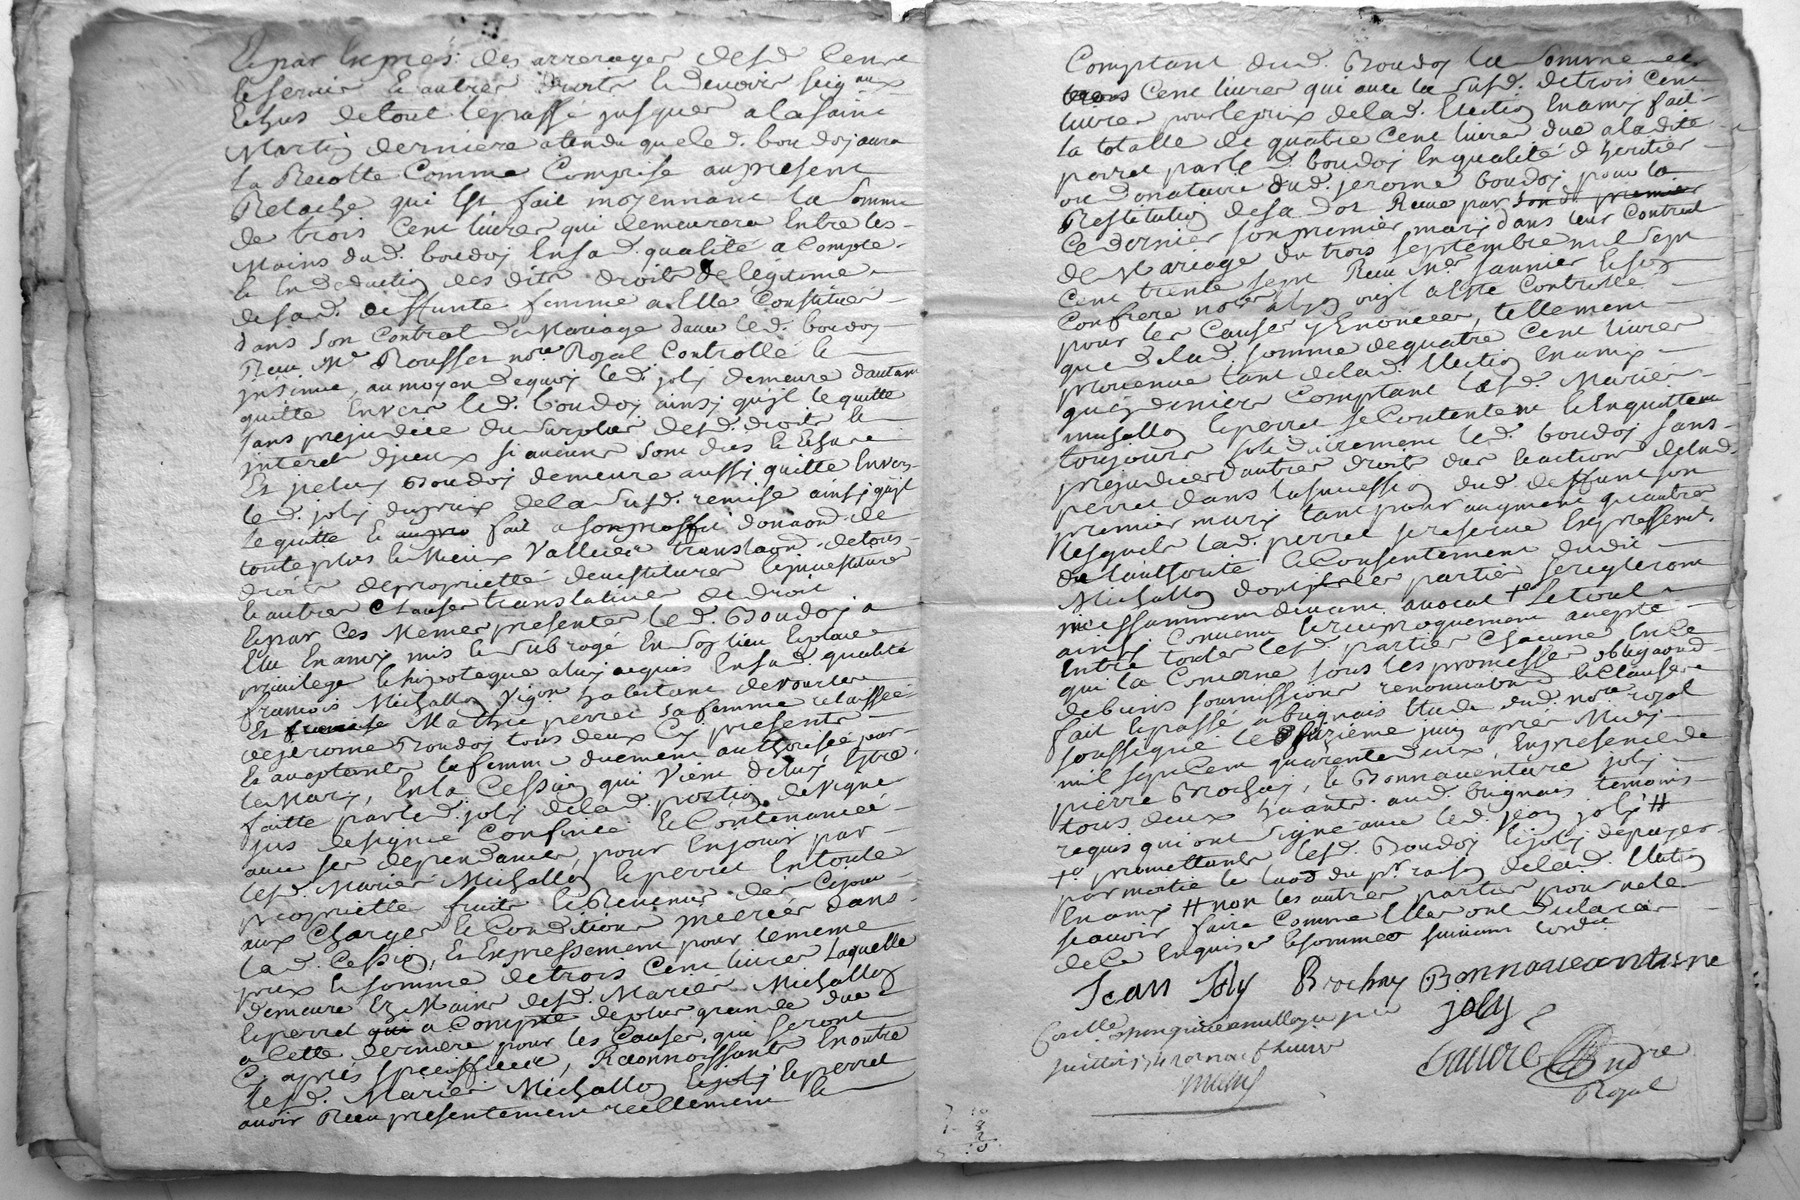 Et par Exprés des arrerages desd. Cens
et servis et autres droits et devoirs seig.aux
Echus de tout le passé jusques a la saint
Martin derniere atendu que le d. boudoj aura
la Recolte Comme Comprise au present
Relache qui Est fait moyennant la Somme
de trois Cent livres qui demeurera Entre les
Mains dud. boudoj En sa d. qualité a Compte
et En deduction des dits droits de légitime
de sa d. deffunte femme a Elle Constitués
dans Son Contrat de Mariage d'avec led. boudoj
Reçu Me Rousset nore Royal Controllé et
jnsinué, au moyen de quoj led. jolj demeure d'autant
quitte Envers led. boudoj ainsj qu'jl le quitte
sans prejudice du Surplus desd. droits et
jnteret d'jceux si aucuns sont dus et Echus
Et jceluj Boudoj demeure aussj quitte Envers
led. jolj du prix de la susd. remise ainsj qu'jl
le quitte et fait a son proffit donaond. de
toute plus et Mieux Vallue translaond. de tous
droits de proprietté devestiture et jnvestiture
et autres Clauses translatives de droit
Et par ces Memes presentes led. Boudoj a
Elu En amy mis et Subrogé En Son lieu et place
privilege et hipoteque a luj acquis En sa d. qualité
francois Michallon Vigon habitant de vourles
Et Mathie perret sa femme relaissée
de jerome Boudoj tous deux Cy presents
Et aceptants la femme duement authorisée par
le Mary, En la Cession qui Vient de luy Estre
faitte par led. jolj de la d. portion de Vigne
sus designée Confinée et Contenancée
avec ses dependances, pour En jouir par
lesd. Mariés Michallon et perret En toute
proprietté fruits et Revenus des Cejour
aux Charges et Conditions Mecrées dans
la d. Cession, Et Expressement pour le meme
prix et somme de trois Cent livres Laquelle
demeure Ez Mains desd. Mariés Michallon
et perret a Compte de plus grande due
a Cette derniere pour les Causes qui seront
Cy aprés specifiées, Reconnoissants En outre
lesd. Mariés Michallon et perret
avoir Reçu presentement réellement et
Comptant du d. Boudoj la Somme de
Cent livres qui avec la susd. de trois Cent
livres pour le prix de la d. Election En amy fait
la totalle de quatre Cent livres due a la dite
perret par le d. boudoj En qualité d'heritier
ou donataire dud. jerome boudoj pour la
Restitution de sa dot Reçue par
Ce dernier son premier mary dans leur Contrat
de Mariage du trois septembre mil sept
cent trente sept Reçu Me Saunier
Confrere nore qu'jl a Esté Controllé
pour les Causes y Enoncées, tellement
que de la d. somme de quatre Cent livres
provenue tant de la d. Election En amy
qu'En deniers Comptant lesd. Mariés
michallon et perret se Contentent et En quittent
toujours solidairement led. boudoj sans
prejudice d'autres droits dus et actions de lad.
perret dans la succession dud. deffunt son
premier mary tant pour augment qu'autres
lesquels lad. perret se reserve Expressement
de l'authorité et Consentement dudit
Michallon dont les parties se regleront
jncessamment devant avocat + Le tout
ainsj Convenu et reciproquement accepté
Entre toutes lesd. parties Chacune En ce
qui la Concerne sous les promesses obligaond.
de biens soumissions renonciaond. et Clauses
fait et passé a brignais Etude dud. nore royal
soussigné le Sixzième juin après Midy
mil sept Cent quarente deux, En presence de
pierre Brochaj, et Bonnaventure jolj
tous deux habants aud. brignais temoins
requis qui ont signé avec led. jean jolj #
+ promettants lesd. Boudoj et jolj de payer
par moitié le laod du pnt raison de la d. Election
En amy # non les autres parties pour ne le
scavoir faire Comme Elles ont declaré
de Ce Enquises et sommées suivant L'ordce
Jean Joly Brochay Bonnaventure
joly
Royal